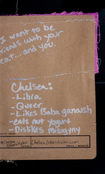 I want to be
friends with your
cat... and you.
Chelsea:
- Libra
- Queer
- Likes Baba ganoush
- eats not yogurt
- Dislikes misogyny